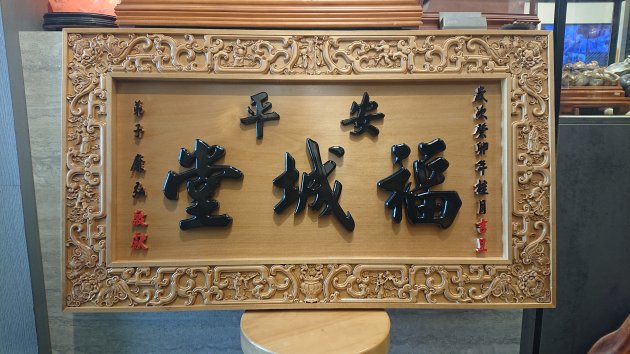 歲次癸卯年桂月吉旦
安平
福城堂
弟子 敬獻